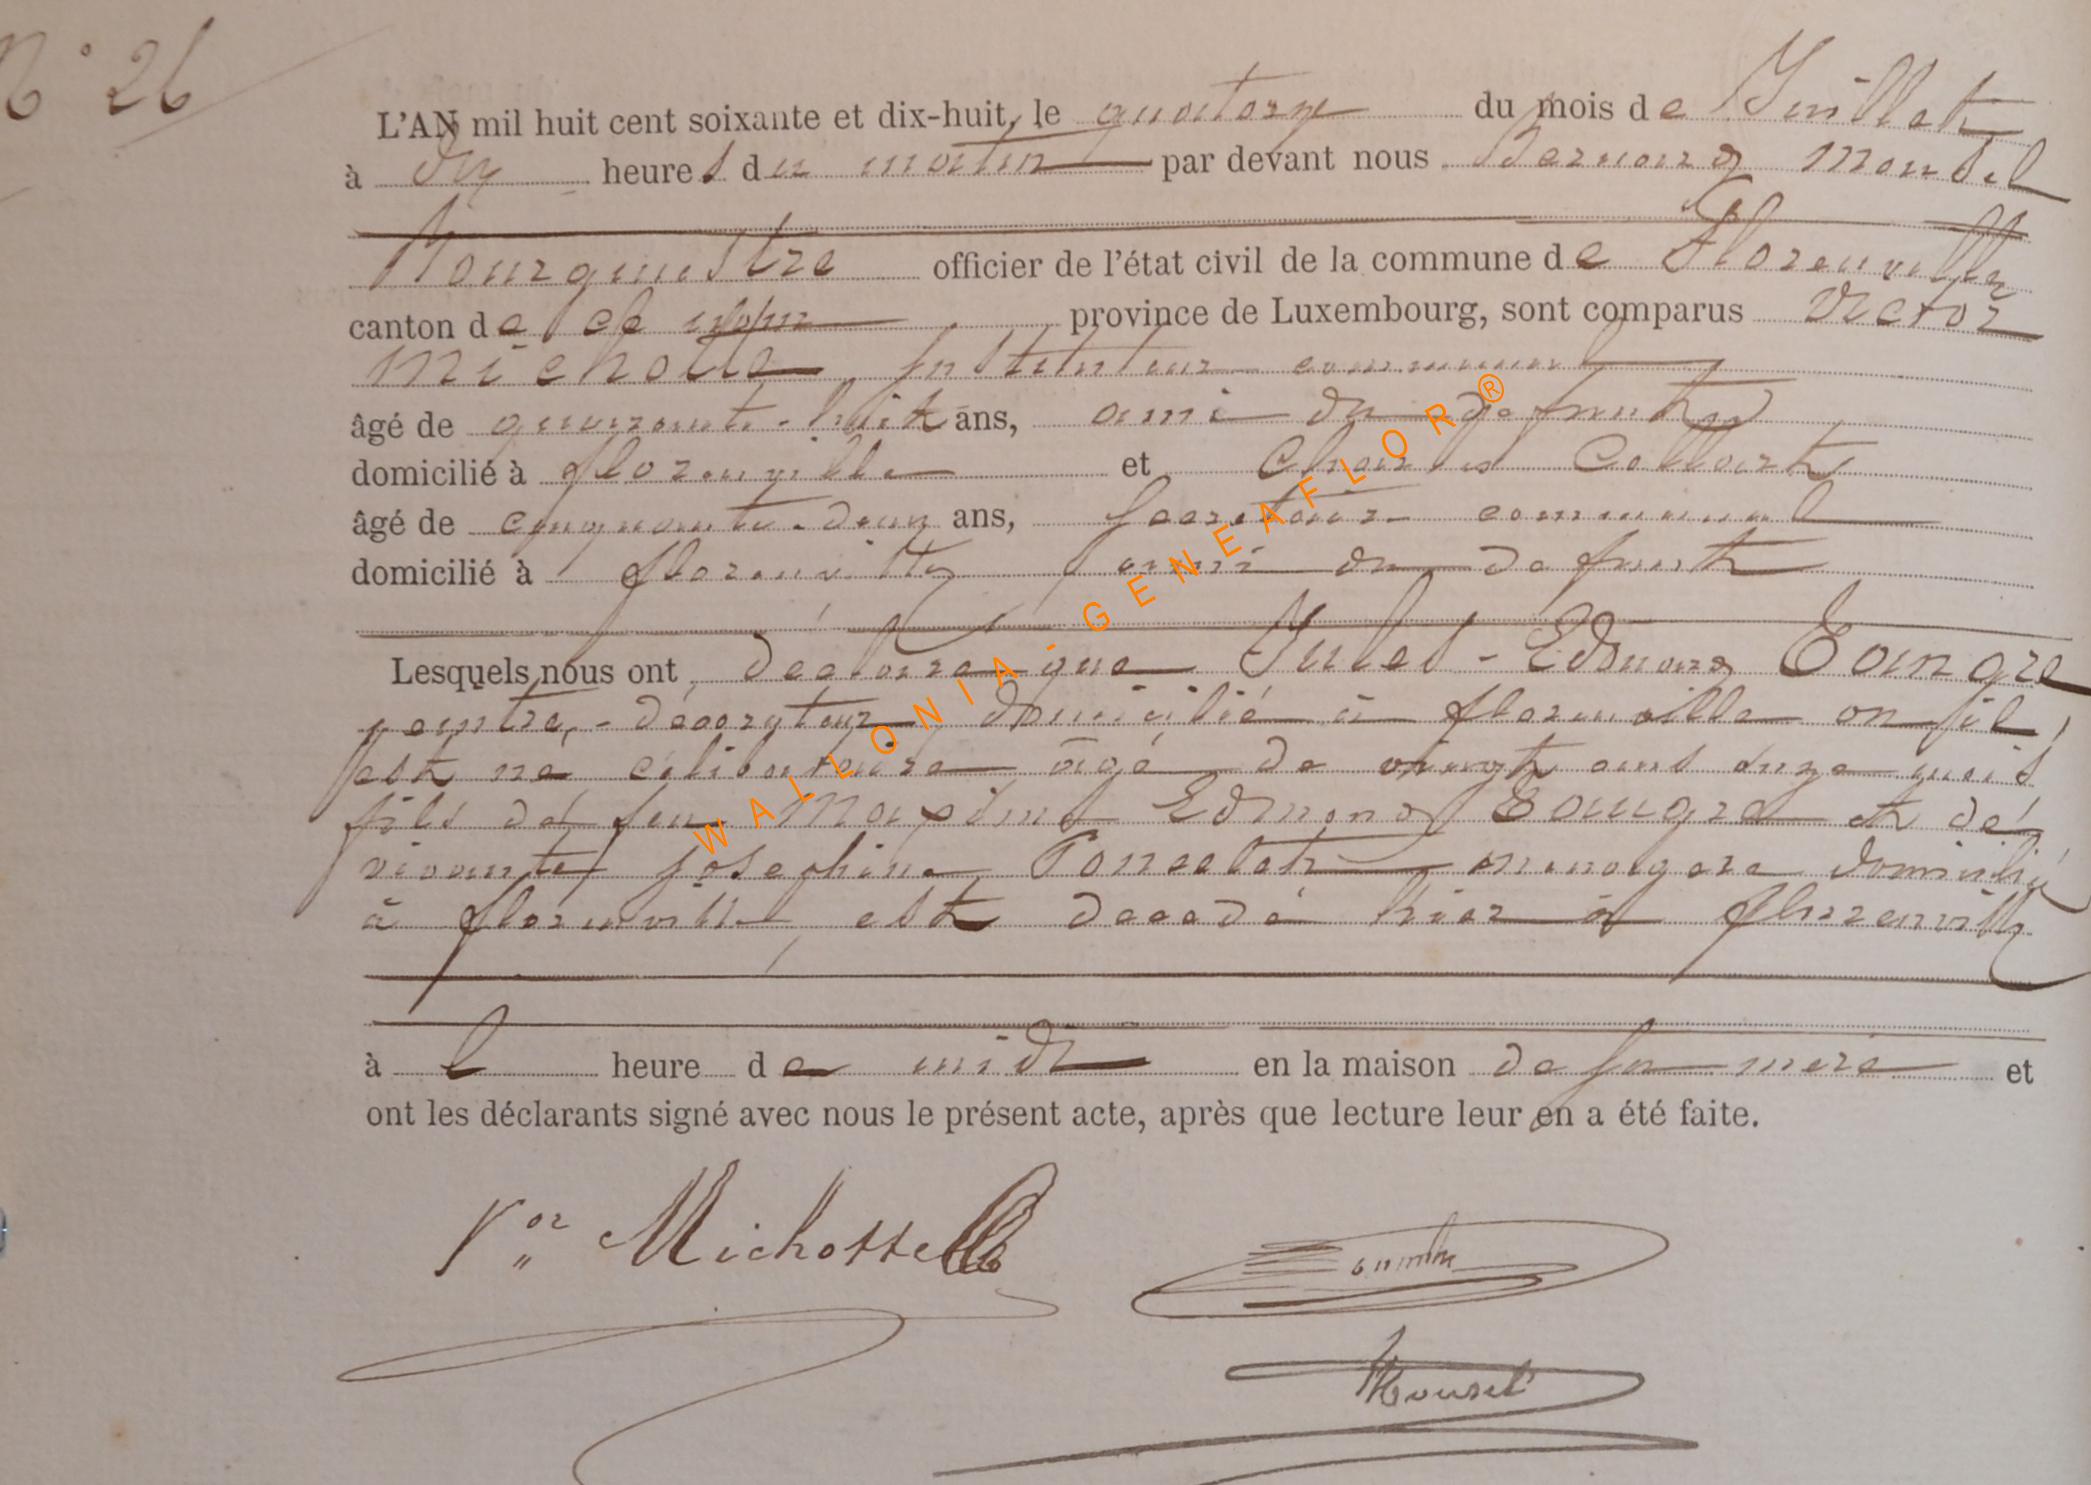 N° 26
L'AN mil huit cent soixante et dix-huit, le quatorze du mois de Juillet
à dix heures du matin par devant nous Bernard
Bourgmestre officier de l'état civil de la commune de Florenville
canton de ce nom province de Luxembourg, sont comparus Victor
Michotte, Instituteur communal
âgé de quarante-huit ans, ami du defunt
domicilié à florenville et Charles Collart
âgé de cinquante-deux ans, Secretaire communal
domicilié à florenville ami du defunt
Lesquels nous ont déclaré que Jules-Edmond Eoungre
peintre-décorateur domicilié à florenville où il
est né célibataire âgé de vingt ans onze mois
fils de feu Maxime Edmond Eoungre et de
vivante Josephine Poncelet menagere domiciliée
à florenville, est decedé hier à florenville
à l heure de midi en la maison de sa mere et
ont les déclarants signé avec nous le présent acte, après que lecture leur en a été faite.
Vor Michotte
WALLONIA-GENEAFLOR®